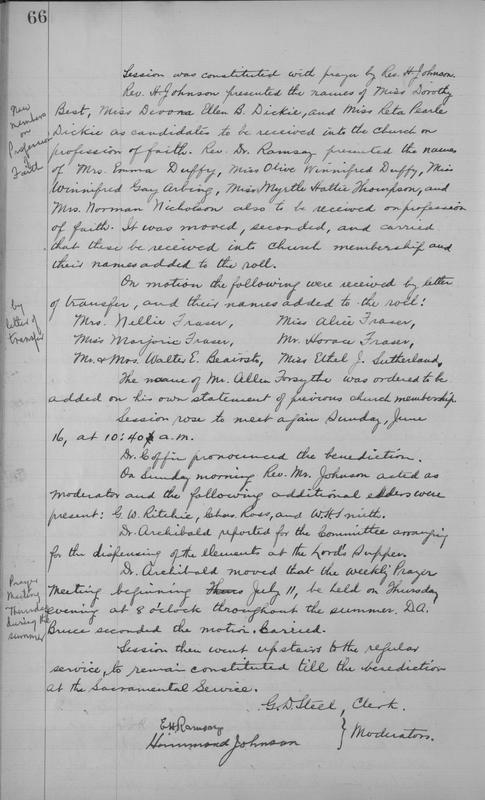 66
Session was constituted with prayer by Rev. H. Johnson.
Rev. H. Johnson presented the names of Miss Dorothy
New
members
on
Profession
of
Faith
Best, Miss Devona Ellen B. Dickie, and Miss Reta Pearle
Dickie as candidates to be received into the church on
profession of faith. Rev. Dr. Ramsay presented the names
of Mrs. Emma Duffy, Miss Olive Winnifred Duffy, Miss
Winnifred Gay Arbing, Miss Myrtle Hattie Thompson, and
Mrs. Norman Nicholson also to be received on profession
of faith. It was moved, seconded, and carried
that these be received into church membership and
their names added to the roll.
On motion the following were received by letter
by
letter of
transfer
of transfer, and their names added to the roll:
Mrs. Nellie Fraser, Miss Alice Fraser,
Miss Marjorie Fraser, Mr. Horace Fraser,
Mr. & Mrs. Walter E. Beairsto, Miss Ethel J. Sutherland.
The name of Mr. Allen Forsythe was ordered to be
added on his own statement of previous church membership
Session rose to meet again Sunday, June
16, at 10:40 a.m.
Dr. Coffin pronounced the benediction.
On Sunday morning Rev. Mr. Johnson acted as
moderator and the following additional elders were
present: G. W. Ritchie, Chas. Ross, and W. H. Smith.
Dr. Archibald reported for the Committee arranging
for the dispensing of the elements at the Lord's Supper.
Dr. Archibald moved that the weekly Prayer
Prayer
Meeting
Thursday
during the
summer
Meeting beginning Thurs July 11, be held on Thursday
evening at 8 o'clock throughout the summer. D.A.
Bruce seconded the motion. Carried.
Session then went upstairs to the regular
service, to remain constituted till the benediction
at the Sacramental Service.
G. D. Steel, Clerk.
E H Ramsay
Hammond Johnson } Moderators.